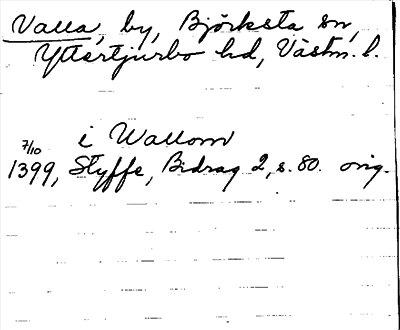 Valla, by, Björksta sn,
Yttertjurbo hd, Västm. l.
i Wallom
7/10
1399, Styffe, Bidrag 2, s. 80. orig.